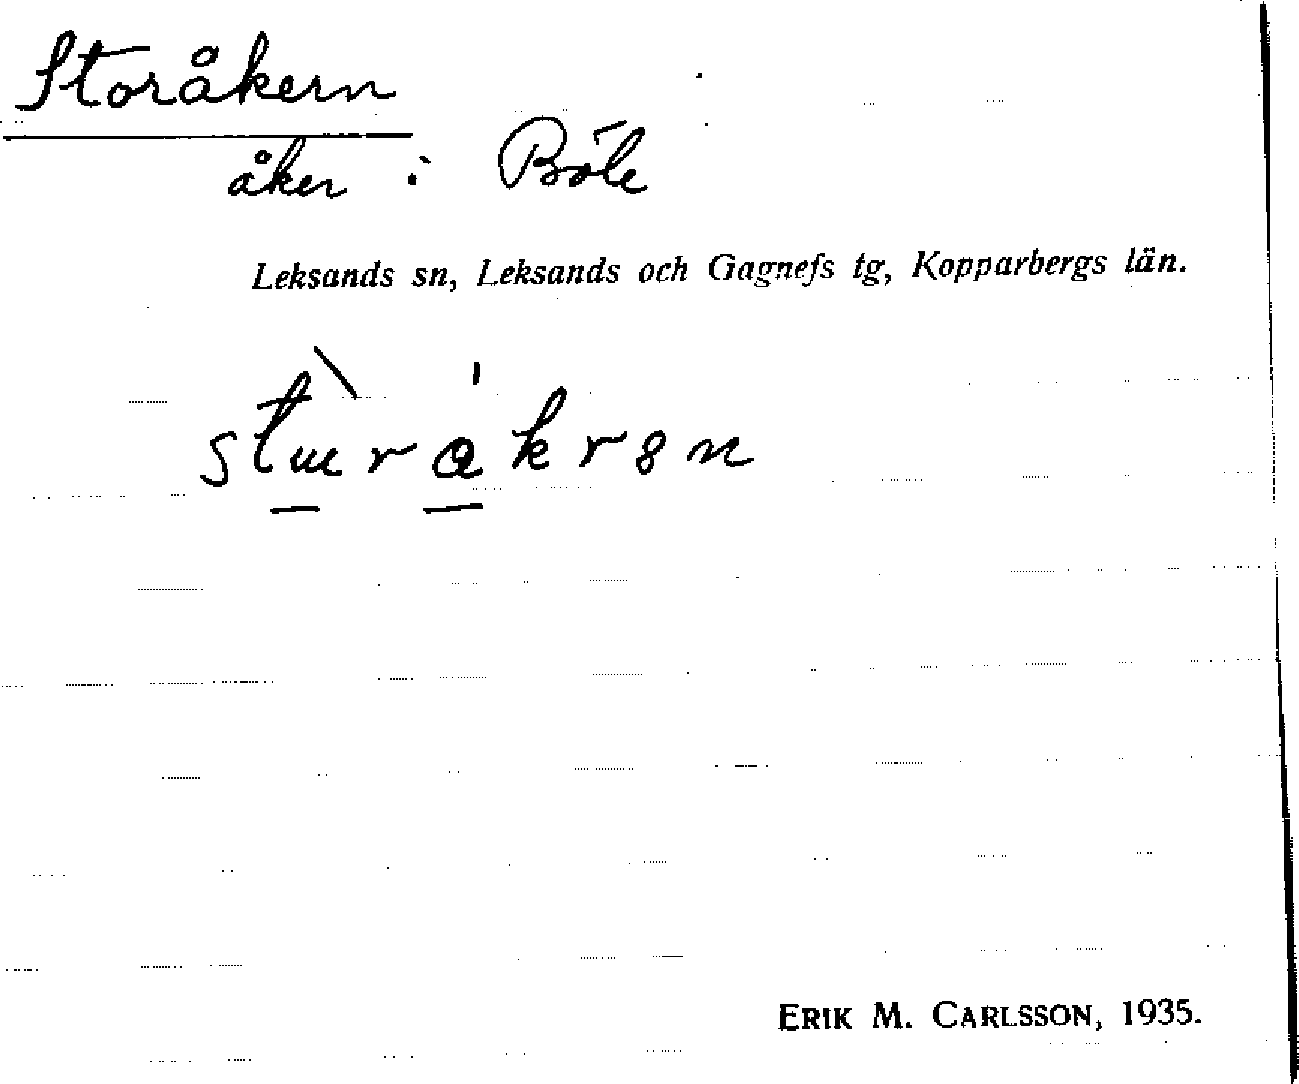 Storåkern
åker i Böle
Leksands sn, Leksands och Gagnefs tg, Kopparbergs län.
stɯ̀rákr8n
ERIK M. CARLSSON, 1935.